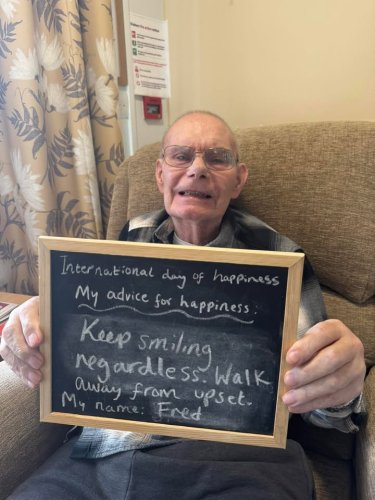 International day of happiness
My advice for happiness:
Keep smiling
regardless. Walk
away from upset.
My name: Fred